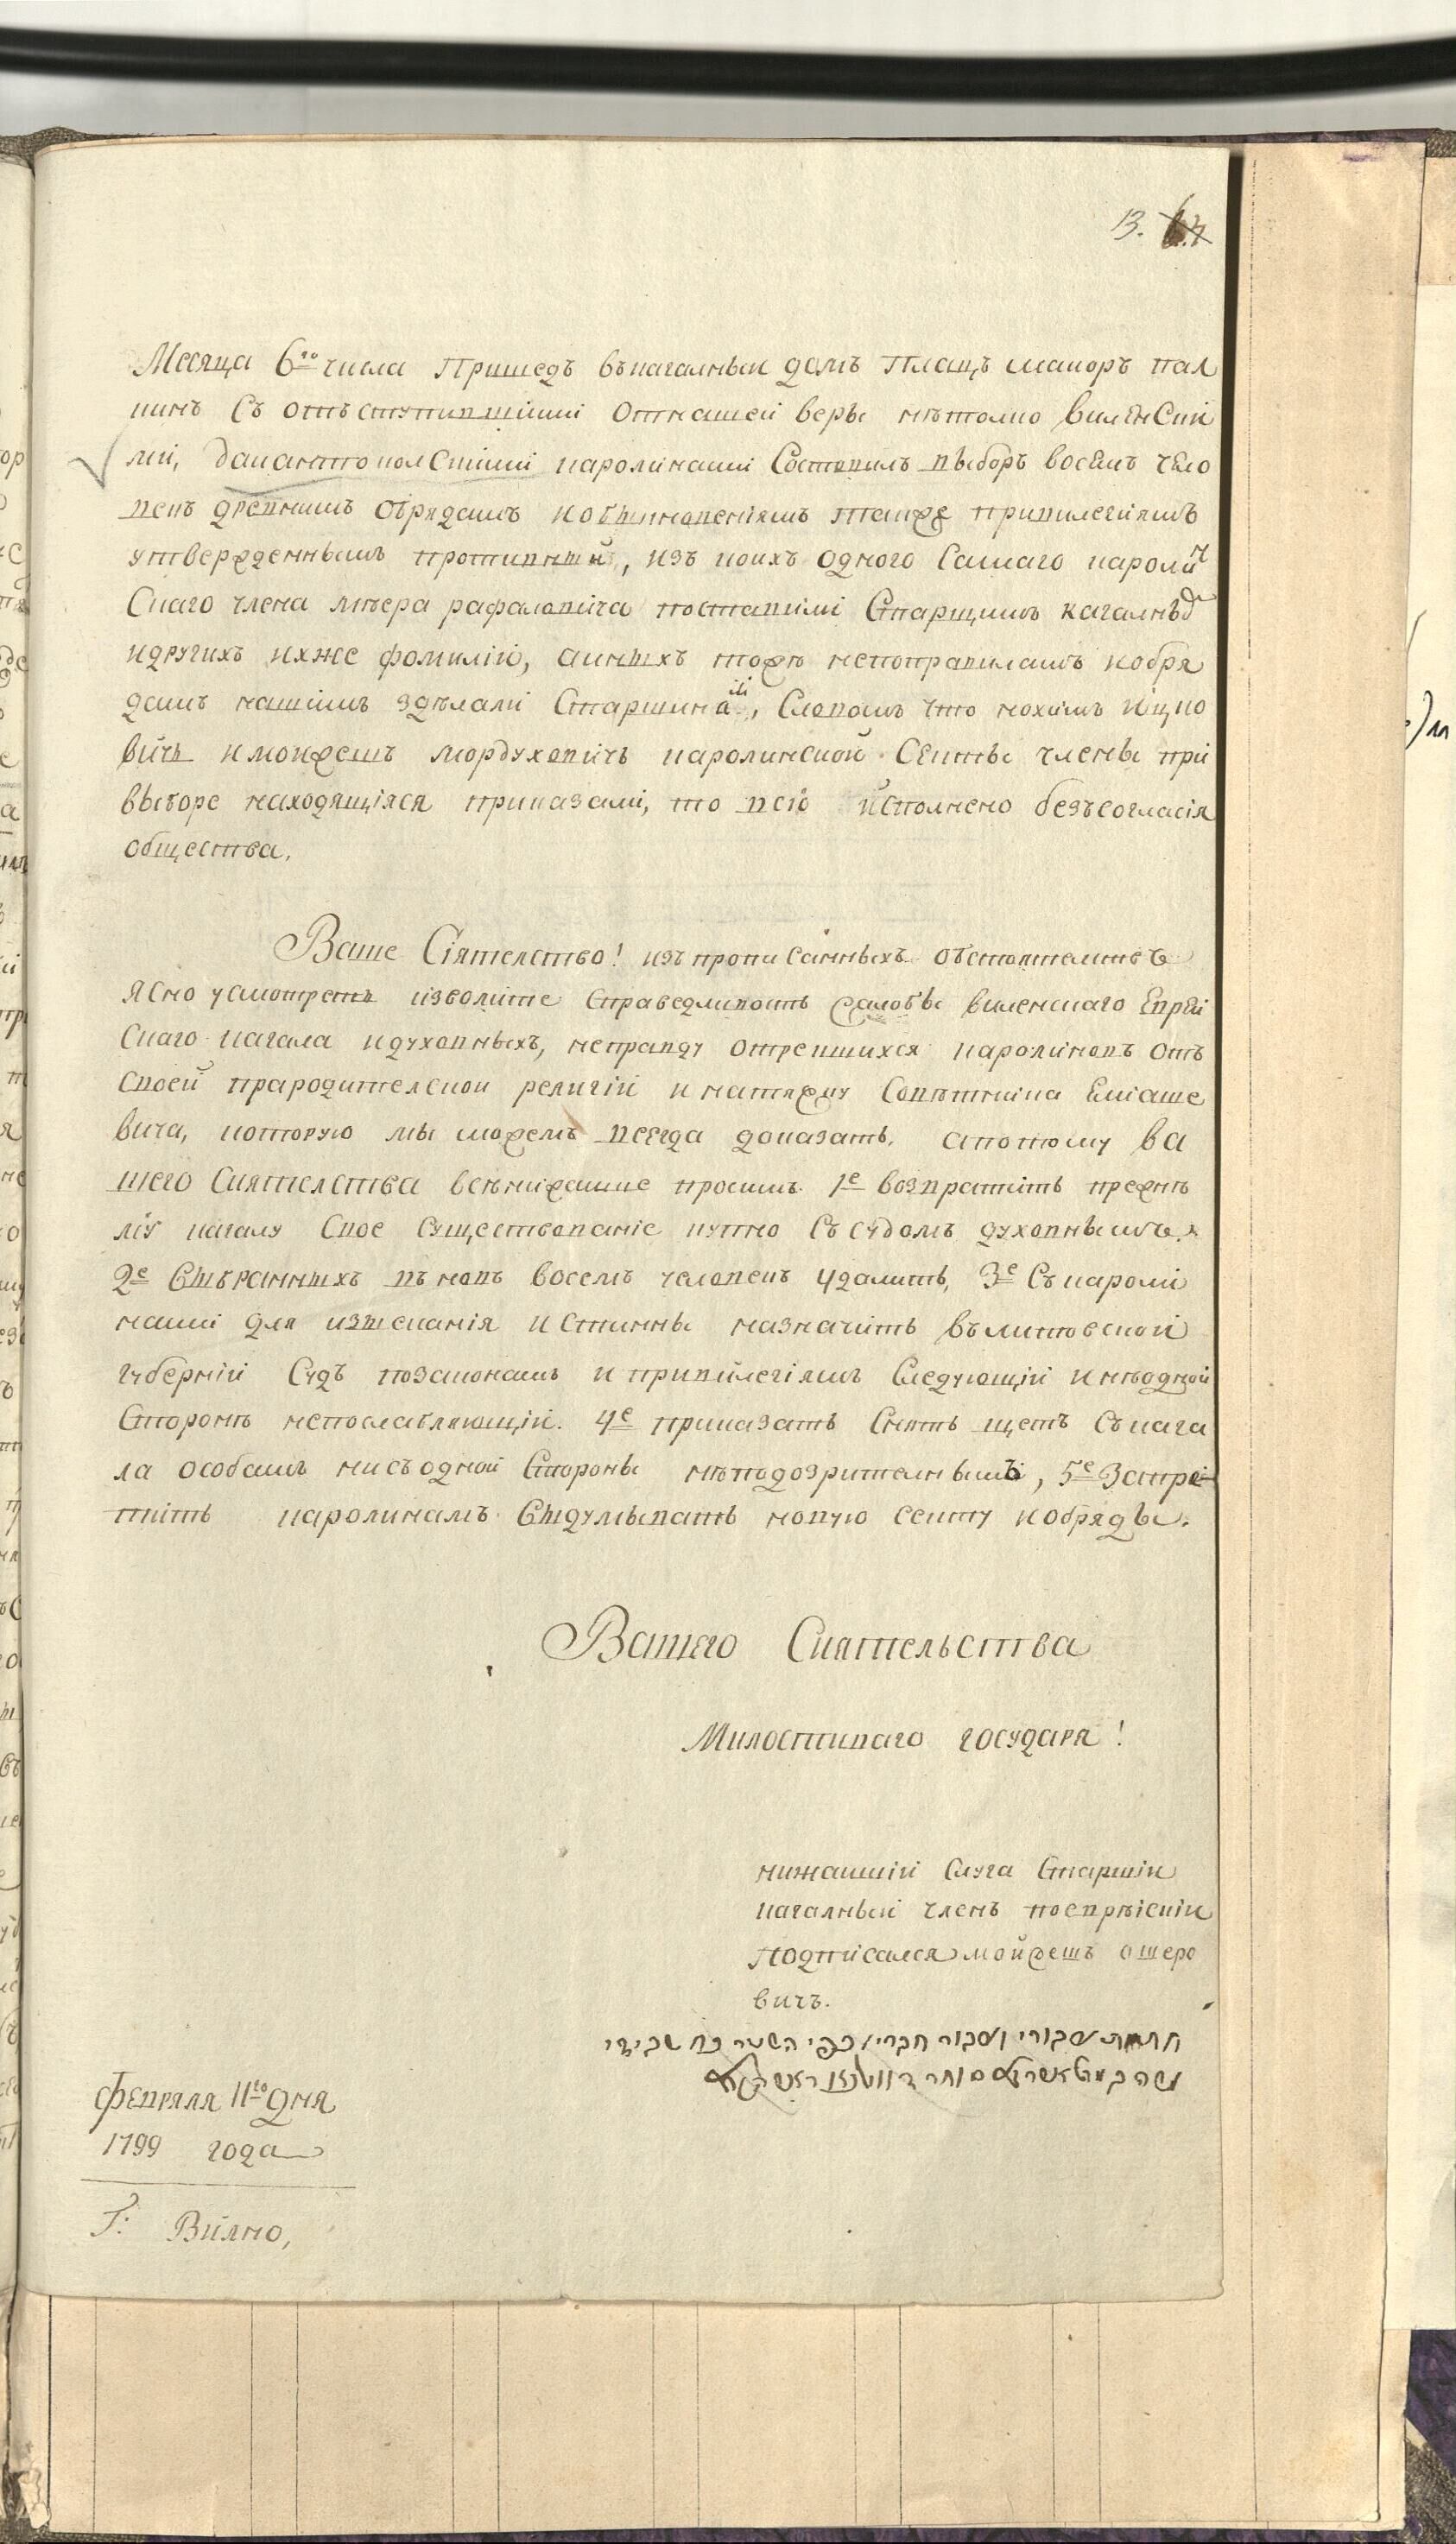 13.
Месяца 6го числа Пришедъ въкагалныи домъ Плацъ маиоръ пал
кинъ Съ отъступившими Отнашеи веры нетолко виленски
ми, даиантоколскими каролинами Составилъ выборъ восемъ чело
векъ древнимъ Обрядамъ иобыкновениямъ также привилегиямъ
утвержденнымъ противный, изъ коихъ одного Самаго каролин
Скаго члена меера рафаловича поставили Старшимъ
идругихъ ихже фомилій, аиныхъ тоже непоправиламъ иобря
дамъ нашимъ зделали Старшинами, Словомъ что нохимъ ицко
вичъ имоижешъ мордуховичъ каролинской Секты члены при
выборе находящіяся приказали, то всiо исполнено безъсогласія
общества.
Ваше Сіятелство! изъпрописанныхъ обстоятелствъ
Ясно усмотреть изволите Справедливость жалобы виленскаго Еврей
Скаго кагала идуховныхъ, неправду отрекшихся каролиновъ отъ
своей прародителской религій и натяжку Советника Еліаше
вича, которую мы можемъ всегда доказать. апотому ва
шего Сиятелства всенижаише просимъ 1е возвратить прежне
му кагалу Свое Существованіе купно Съ судомъ духовнымъ,
2е Выбранныхъ въновъ восемъ человекъ удалить, 3е Съкароли
нами для изысканія истинны назначить вълитовской
губерній Судъ позаконамъ и привилегіямъ Следующій иниодной
Стороне непослабляющій. 4е приказать Снять щетъ Съкага
ла особамъ нисъодной Стороны неподозрителнымъ, 5е Запре
тить каролинамъ Выдумывать новую секту иобряды.
Вашего Сиятельства
Милостиваго государя!
нижаишій Слуга Старшій
кагалныи членъ поеврейскіи
Подписался мойжешъ ошеро
вичъ.
Февраля 11го дня
1799 года
Г: Вилно,